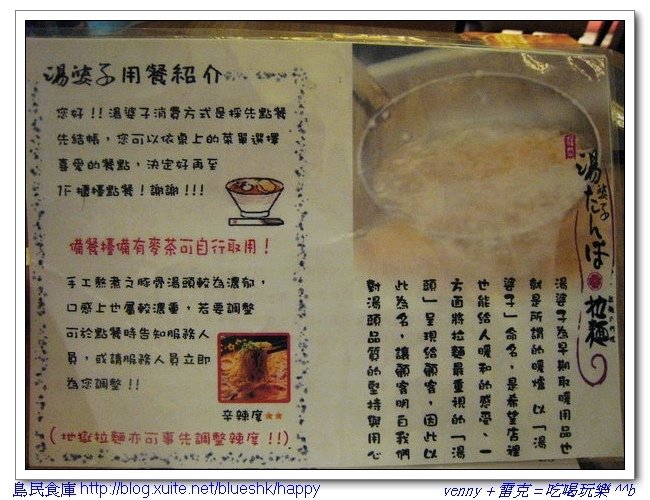 湯婆子用餐紹介
您好!!湯婆子消費方式是採先點餐
先結帳，您可以依桌上的菜單選擇
喜愛的餐點，決定好再至
1F櫃檯點餐!謝謝!!!
備餐檯備有麥茶可自行取用!
手工熬煮之豚骨湯頭較為濃郁，
口感上也屬較濃重，若要調整
可於點餐時告知服務人
員，或請服務人員立即
為您調整!!
辛辣度★★
(地獄拉麵亦可事先調整辣度!!)
湯婆子たんぽ 拉麵
湯婆子為早期取暖用品也
就是所謂的暖爐，以「湯
婆子」命名，是希望店裡
也能給人暖和的感受，一
方面將拉麵最重視的「湯
頭」呈現給顧客，因此以
此為名，讓顧客明白我們
對湯頭品質的堅持與用心
島民食庫 http://blog.xuite.net/blueshk/happy
venny + 雷克 = 吃喝玩樂 ^^b